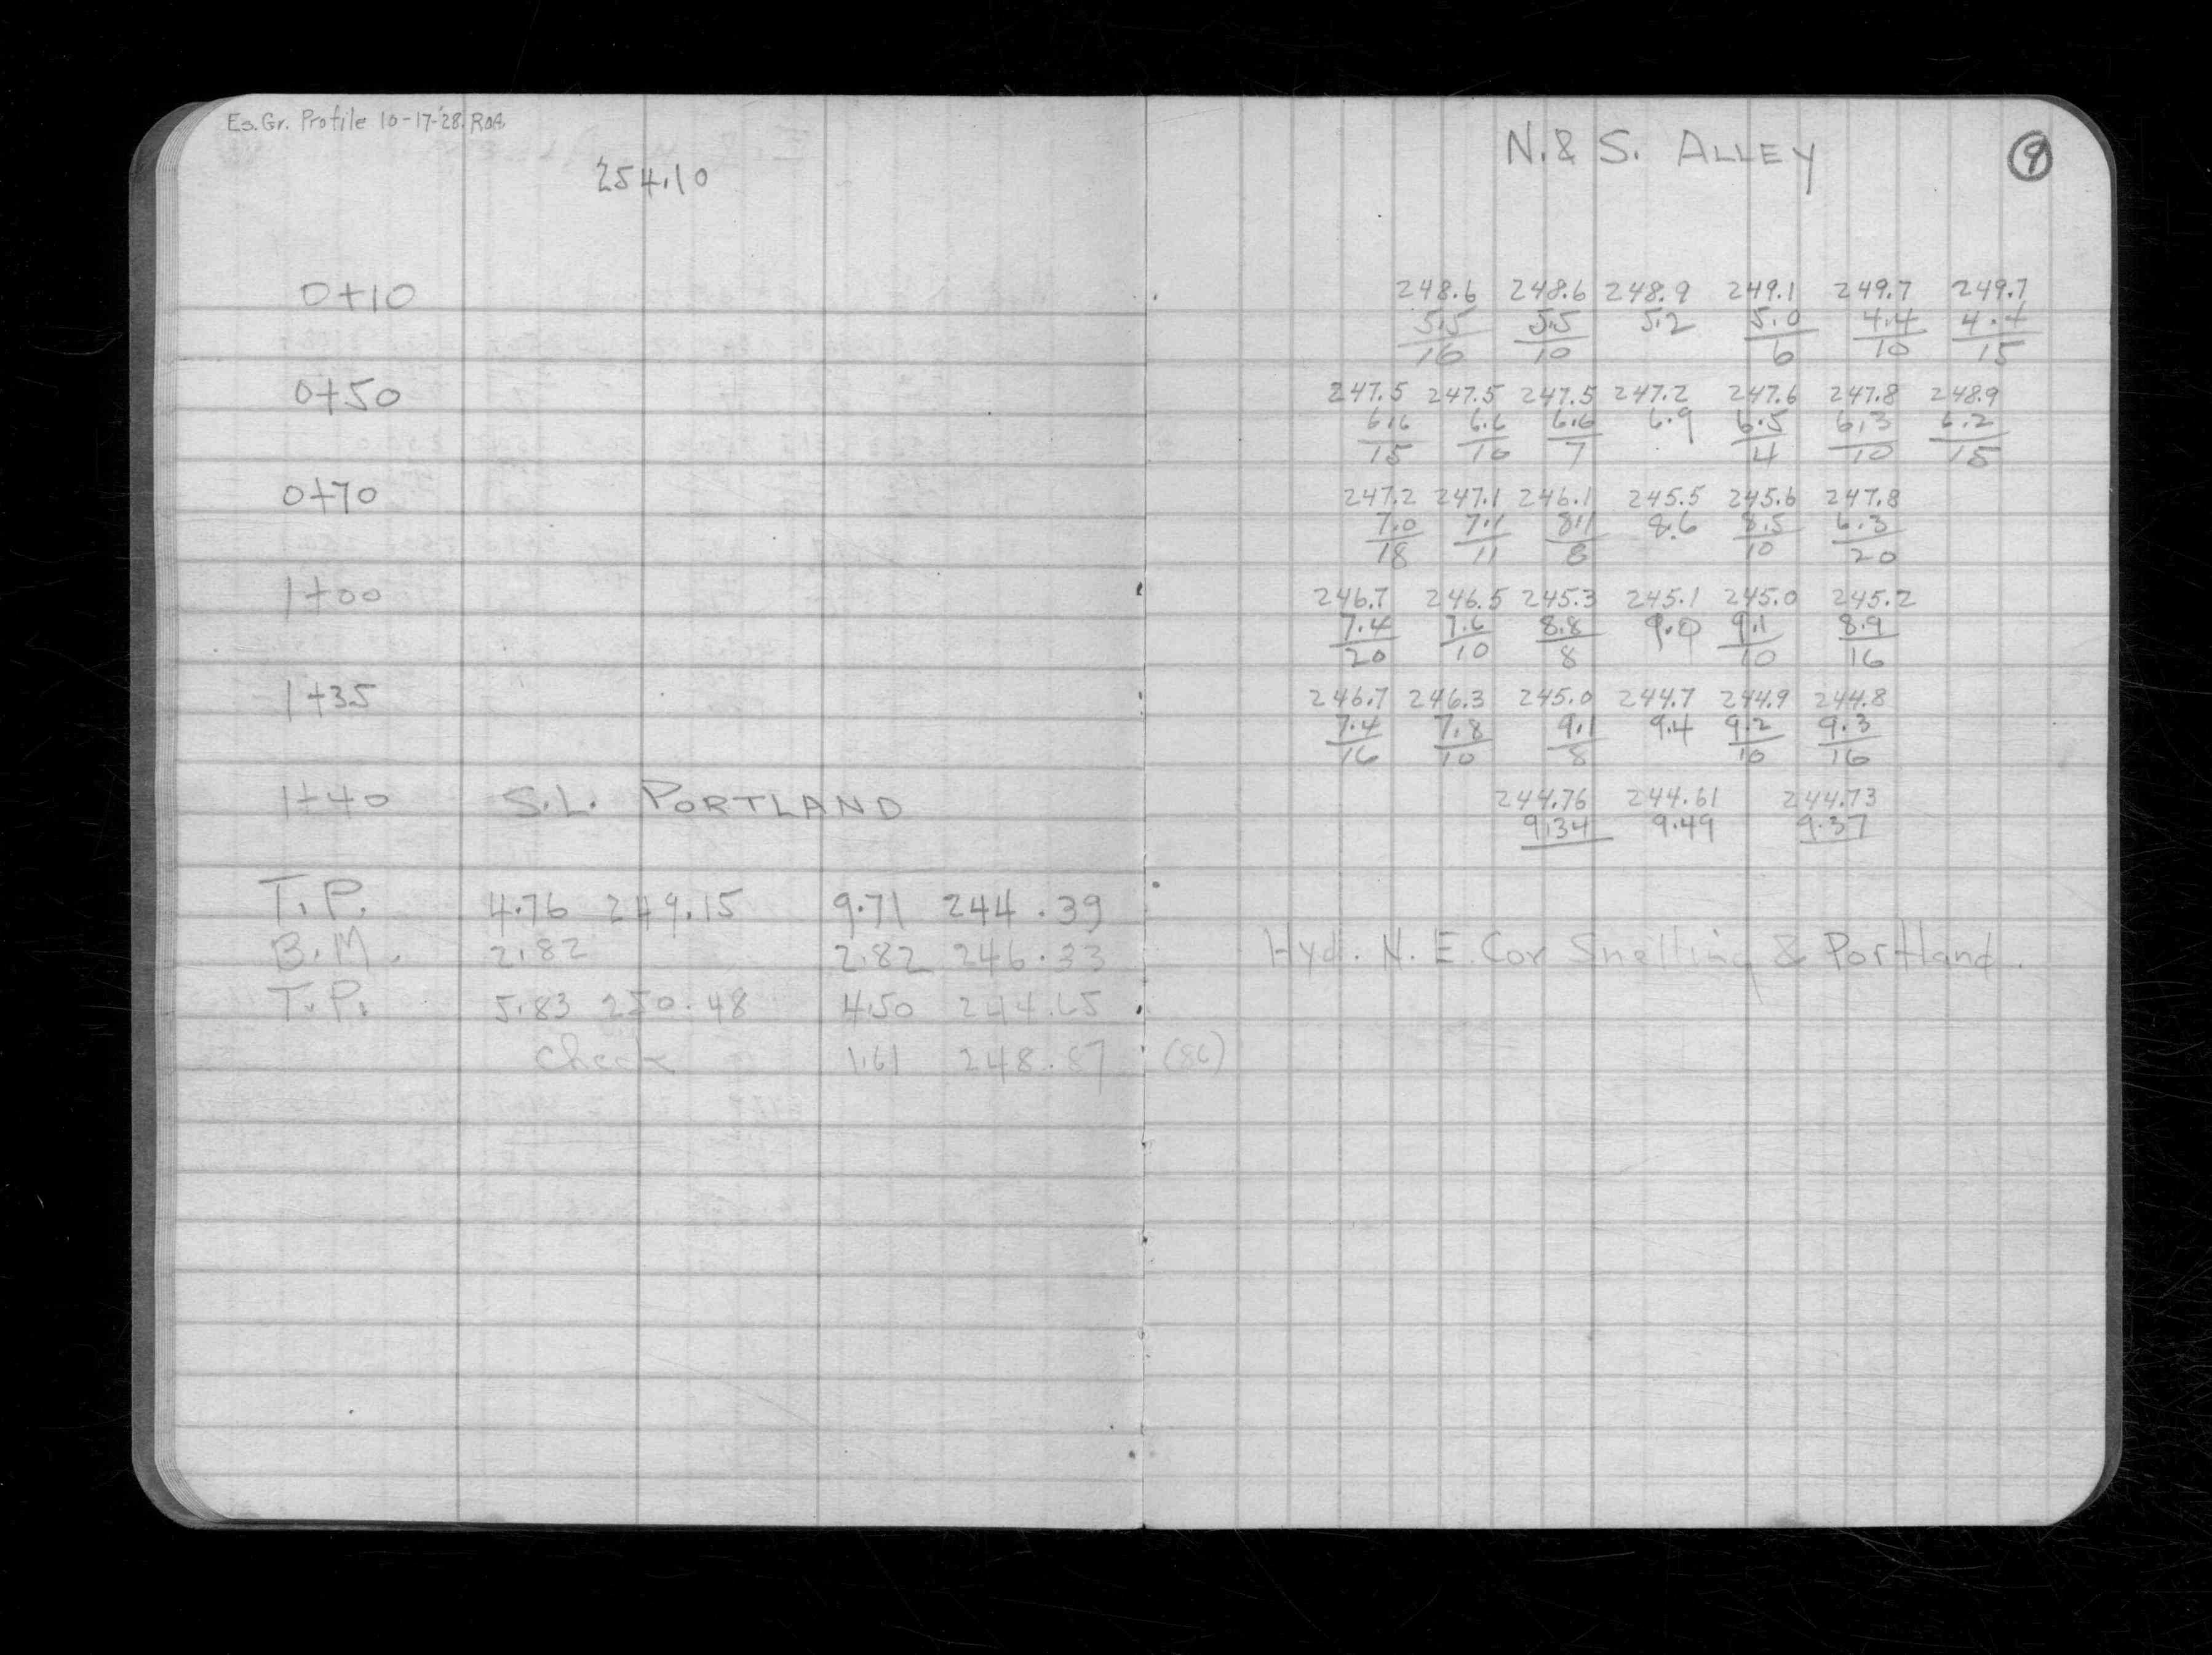 Es. Gr. Profile 10-17-'28. ROA
254.10
0+10
0+50
0+70
1+00
1+35
1+40 S.L. PORTLAND
T.P. 4.76 249.15 9.71 244.39
B.M. 2.82 2.82 246.33
T.P. 5.83 250.48 4.50 244.65
Check 1.61 248.87 (86)
N. & S. ALLEY 9
248.6 248.6 248.9 249.1 249.7 249.7
5.5 5.5 5.2 5.0 4.4 4.4
16 10 6 10 15
247.5 247.5 247.5 247.2 247.6 247.8 248.9
6.6 6.6 6.6 6.9 6.5 6.3 6.2
15 10 7 4 10 15
247.2 247.1 246.1 245.5 245.6 247.8
7.0 7.1 8.1 8.6 8.5 6.3
18 11 8 10 20
246.7 246.5 245.3 245.1 245.0 245.2
7.4 7.6 8.8 9.0 9.1 8.9
20 10 8 10 16
246.7 246.3 245.0 244.7 244.9 244.8
7.4 7.8 9.1 9.4 9.2 9.3
16 10 8 10 16
244.76 244.61 244.73
9.34 9.49 9.37
Hyd. N. E. Cor Snelling & Portland.